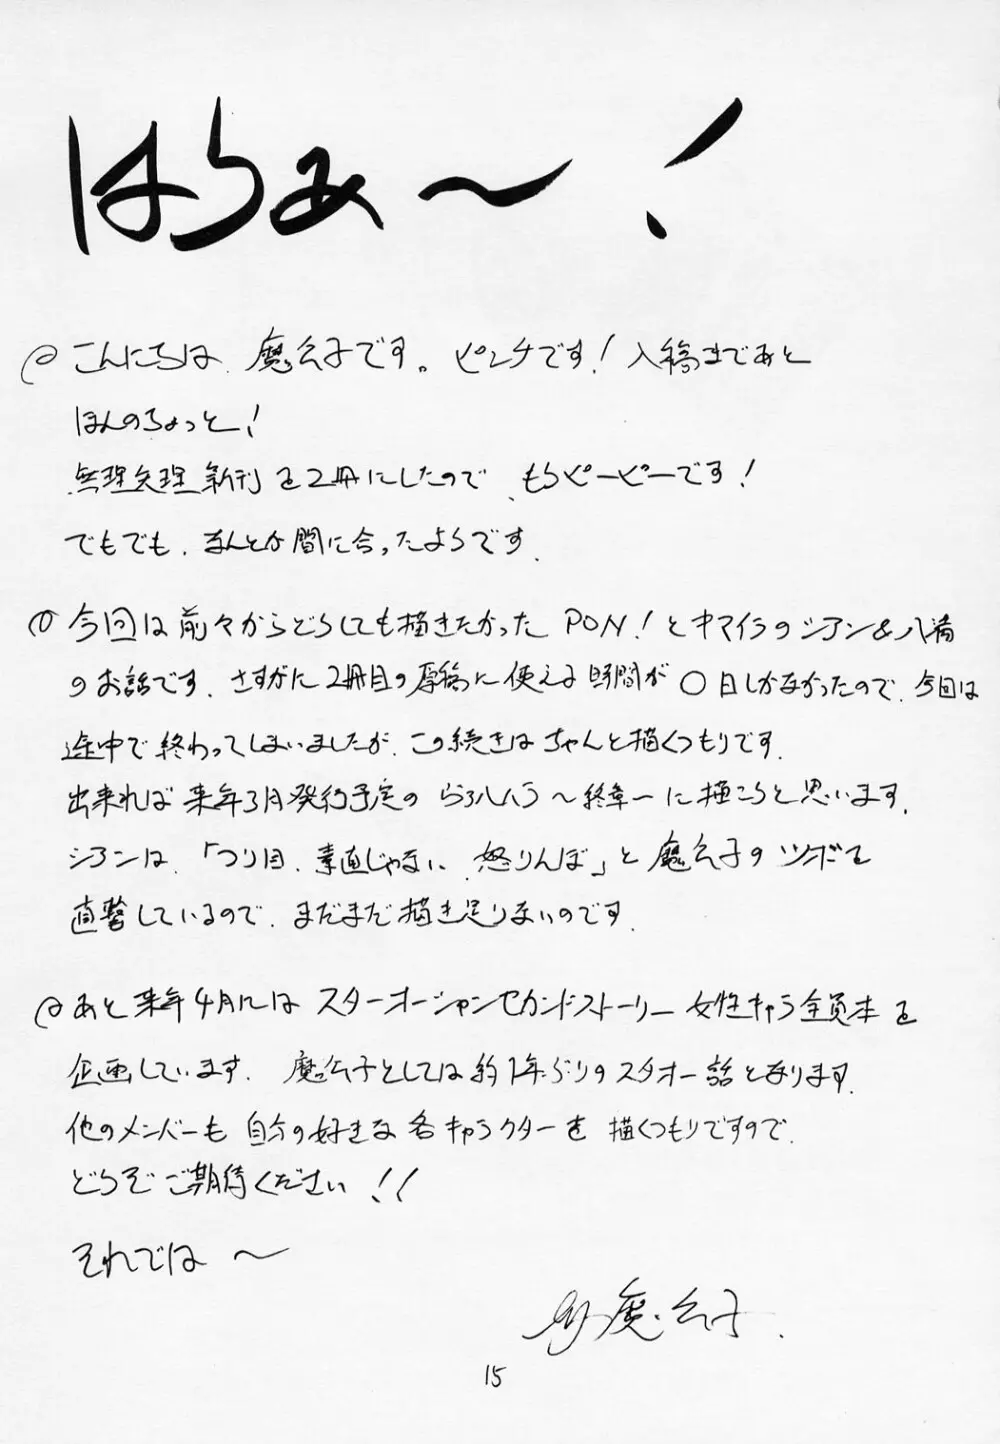 はらぁ〜!
こんにちは、魔公子です。ピンチです!入稿まであと
ほんのちょっと!
無理矢理新刊を2冊にしたので、もうピーピーです!
でもでも、なんとか間に合ったようです。
今回は前々からどうしても描きたかったPON!とキマイラのシアン&八満
のお話です。さすがに2冊目の原稿に使える時間が〇日しかなかったので、今回は
途中で終わってしまいましたが、この続きはちゃんと描くつもりです。
出来れば来年3月発行予定の らぶハラ〜終章〜に描こうと思います。
シアンは、「つり目、素直じゃない、怒りんぼ」と魔公子のツボを
直撃しているので、まだまだ描き足りないのです。
あと来年4月にはスターオーシャンセカンドストーリー女性キャラ全員本を
企画しています。魔公子としては約1年ぶりのスタオー話となります。
他のメンバーも自分の好きな各キャラクターを描くつもりですので、
どうぞご期待ください!!
それでは〜
魔公子.
15